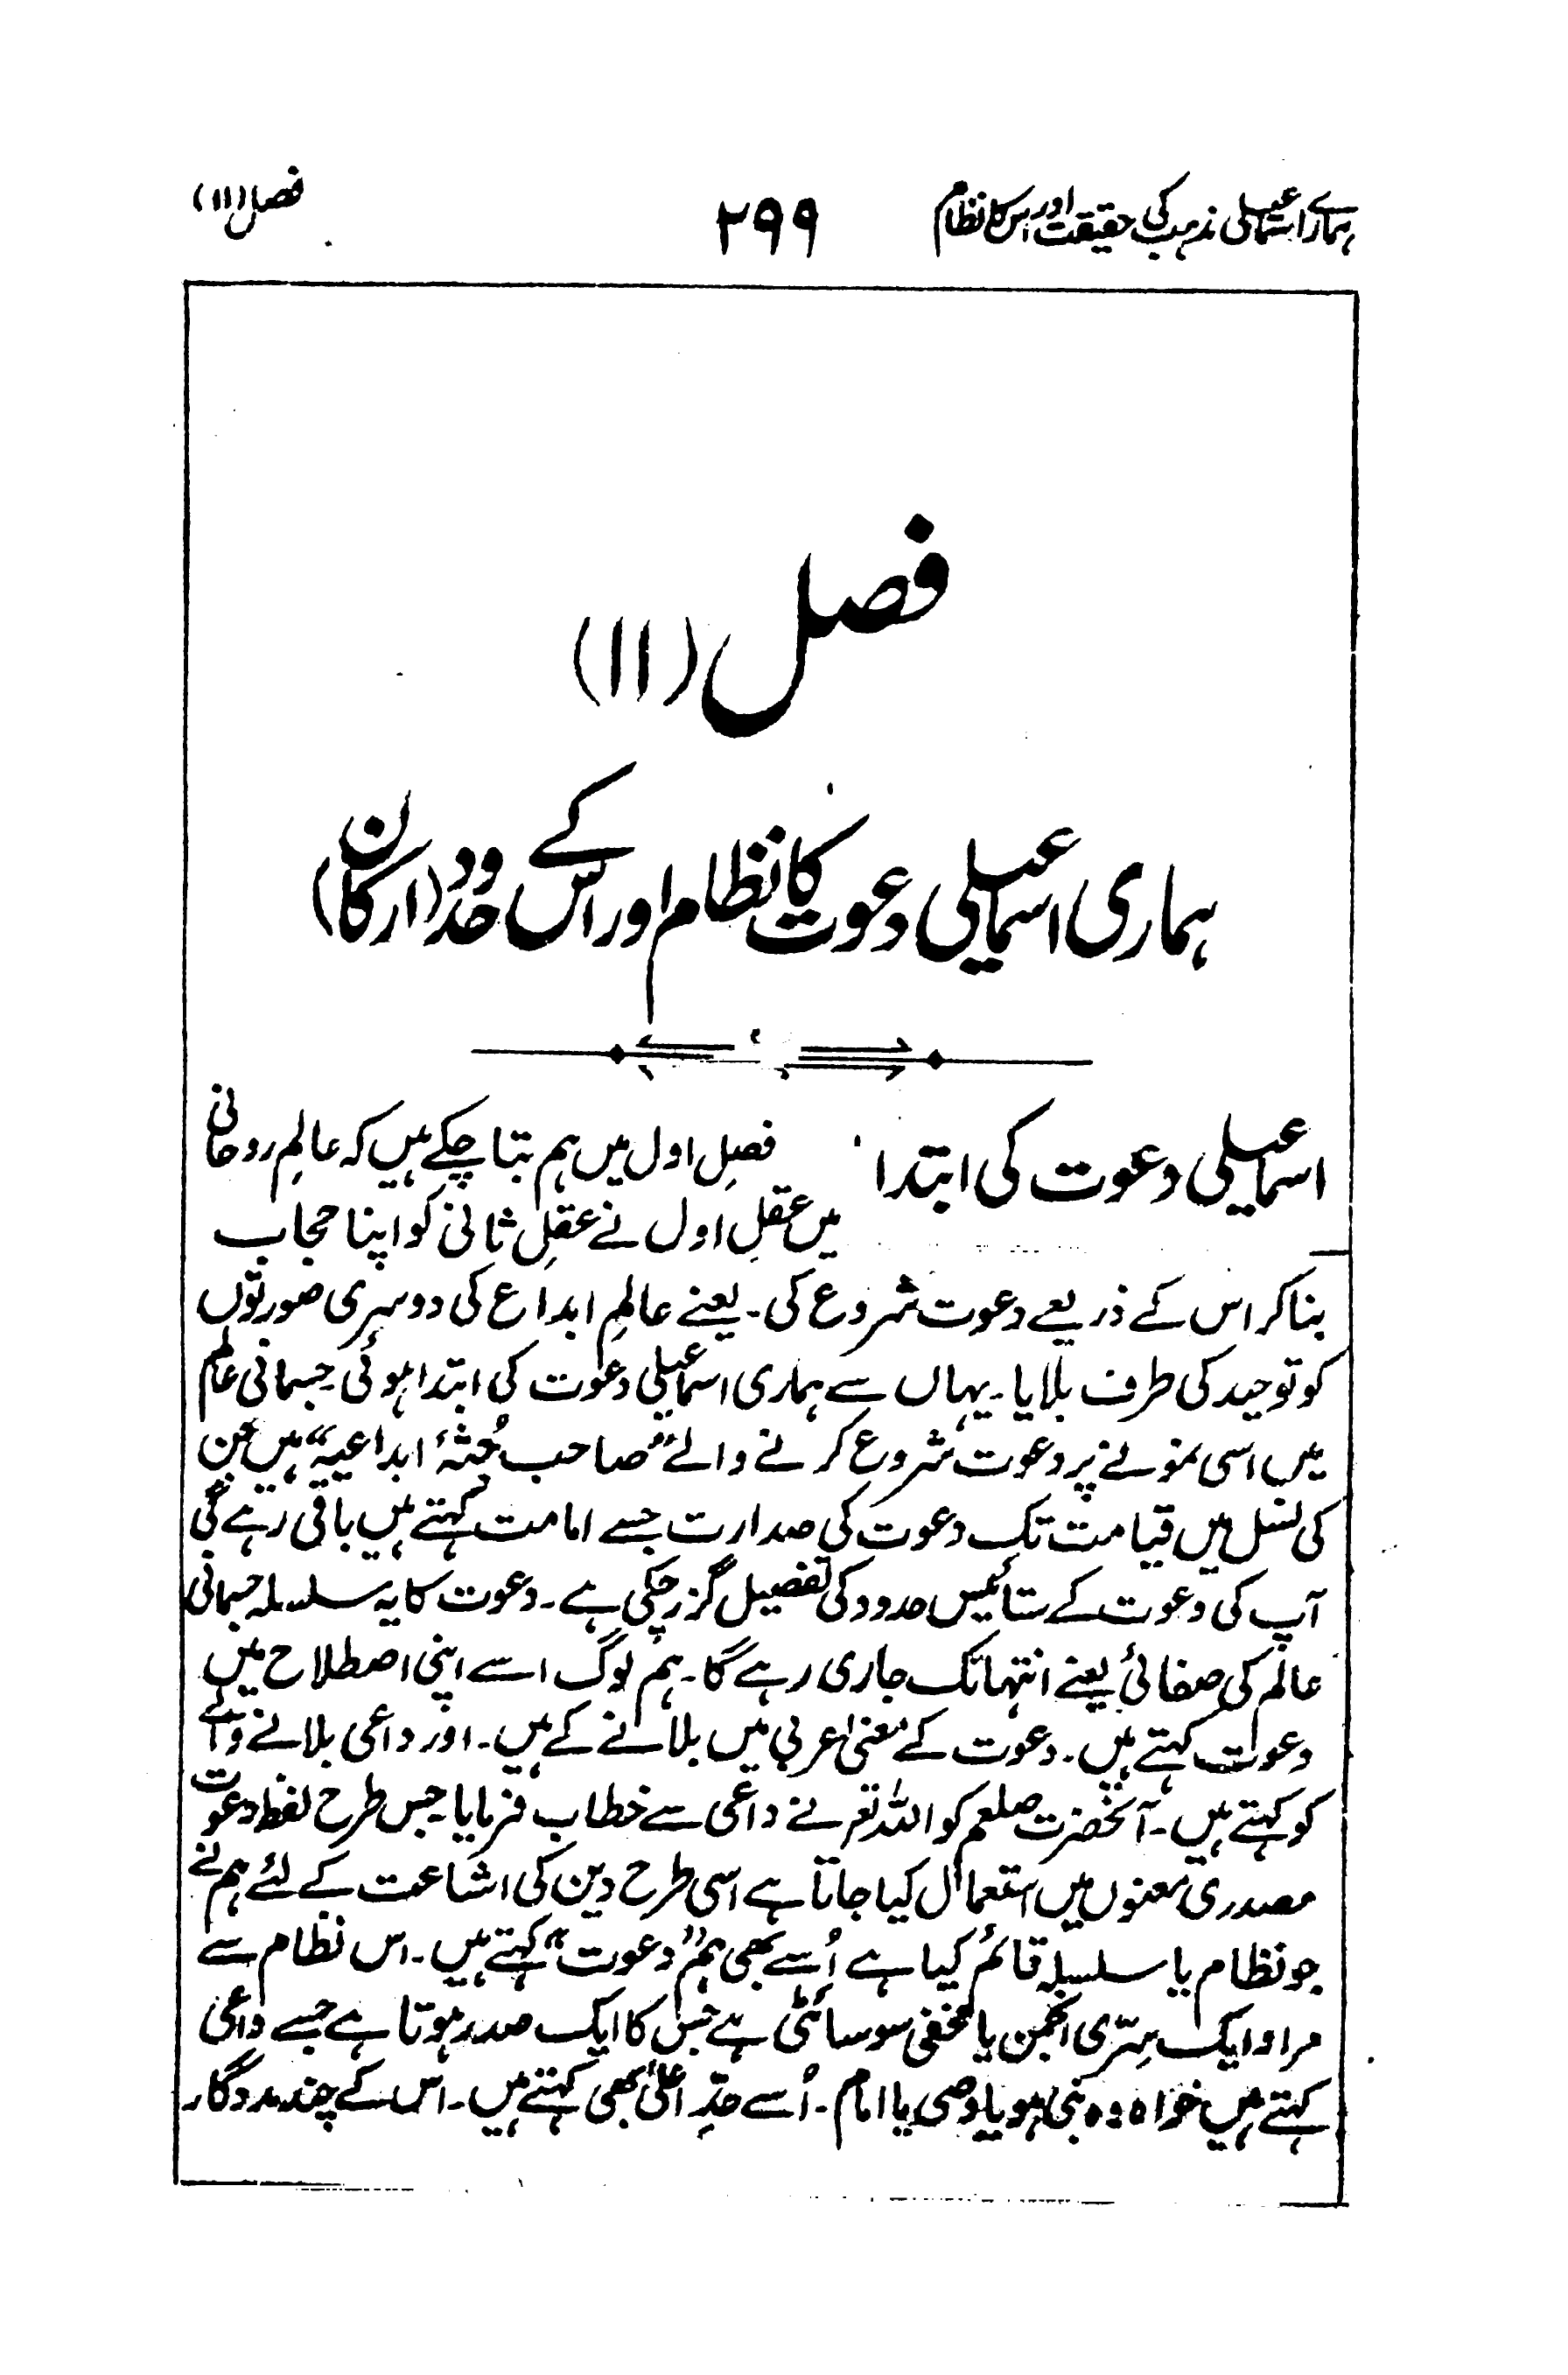 ہمارے اسماعیلی مذہب کی حقیقت اور اس کا نظام ۲۹۹ فصل (۱۱)
فصل (۱۱)
ہماری اسماعیلی دعوت کا نظام اور اس کے حدود (ارکان)
اسماعیلی دعوت کی ابتدا فصلِ اول میں ہم بتا چکے ہیں کہ عالمِ روحانی
میں عقلِ اول نے عقلِ ثانی کو اپنا حجاب
بنا کر اس کے ذریعے دعوت شروع کی۔ یعنے عالمِ ابداع کی دوسری صورتوں
کو توحید کی طرف بلایا۔ یہاں سے ہماری اسماعیلی دعوت کی ابتدا ہوئی۔ جسمانی عالم
میں اسی نمونے پر دعوت شروع کرنے والے "صاحب جُثۂ ابداعیہ" ہیں جن
کی نسل میں قیامت تک دعوت کی صدارت جسے امامت کہتے ہیں باقی رہے گی
آپ کی دعوت کے ستائیس حدود کی تفصیل گزر چکی ہے۔ دعوت کا یہ سلسلہ جسمانی
عالم کی صفائی یعنے انتہا تک جاری رہے گا۔ ہم لوگ اسے اپنی اصطلاح میں
دعوت کہتے ہیں۔ دعوت کے معنیٰ عربی میں بلانے کے ہیں۔ اور داعی بلانے والے
کو کہتے ہیں۔ آنحضرت صلعم کو اللہ تعہ نے داعی سے خطاب فرمایا جس طرح لفظ دعوت
مصدری معنوں میں استعمال کیا جاتا ہے اسی طرح دین کی اشاعت کے لئے ہم نے
جو نظام یا سلسلہ قائم کیا ہے اُسے بھی ہم "دعوت" کہتے ہیں۔ اس نظام سے
مراد ایک سِرّی انجمن یا مخفی سوسائٹی ہے جس کا ایک صدر ہوتا ہے جسے داعی
کہتے ہیں خواہ وہ نبی ہو یا وصی یا امام۔ اُسے حدِّ اعلیٰ بھی کہتے ہیں۔ اس کے چند مددگار